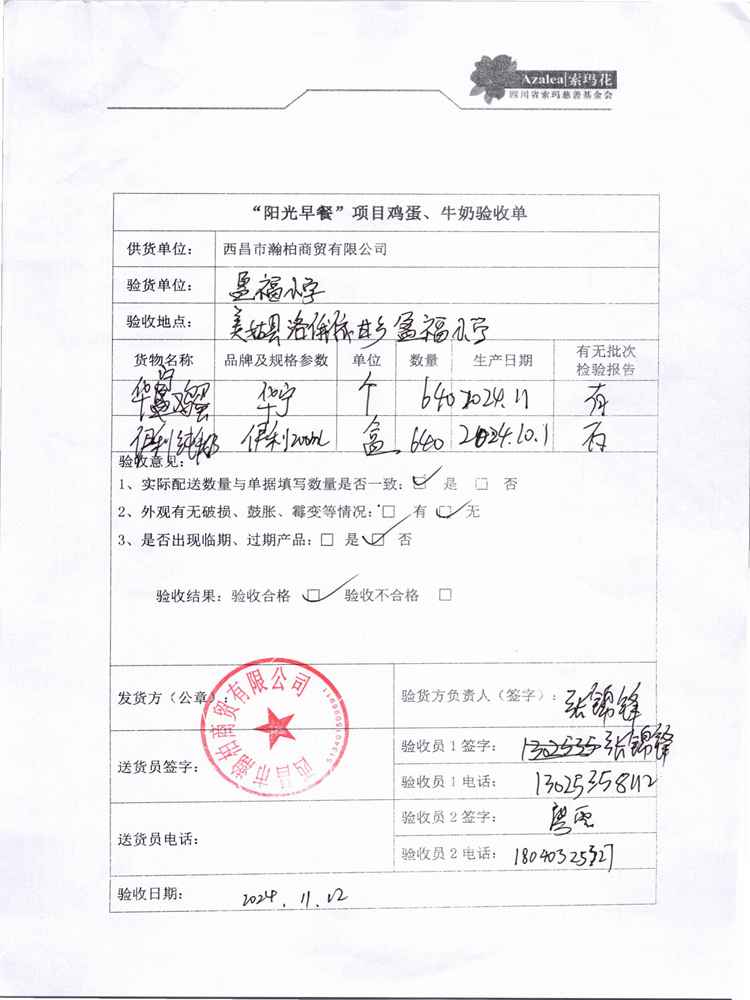 Azalea|索玛花
四川省索玛慈善基金会
“阳光早餐”项目鸡蛋、牛奶验收单
供货单位： 西昌市瀚柏商贸有限公司
验货单位： 盈福小学
验收地点： 美姑县洛俄依甘乡盈福小学
货物名称 品牌及规格参数 单位 数量 生产日期 有无批次检验报告
华宁鸡蛋 华宁 个 640 2024.11 有
伊利纯奶 伊利200mL 盒 640 2024.10.1 有
验收意见：
1、实际配送数量与单据填写数量是否一致：☑ 是 □ 否
2、外观有无破损、鼓胀、霉变等情况：□ 有 ☑ 无
3、是否出现临期、过期产品：□ 是 ☑ 否
验收结果：验收合格 ☑ 验收不合格 □
发货方（公章）：
西昌市瀚柏商贸有限公司
验货方负责人（签字）：张锦锋
送货员签字：
验收员1签字：张锦锋
验收员1电话：
送货员电话：
验收员2签字：
验收员2电话：18040325327
验收日期： 2024.11.12